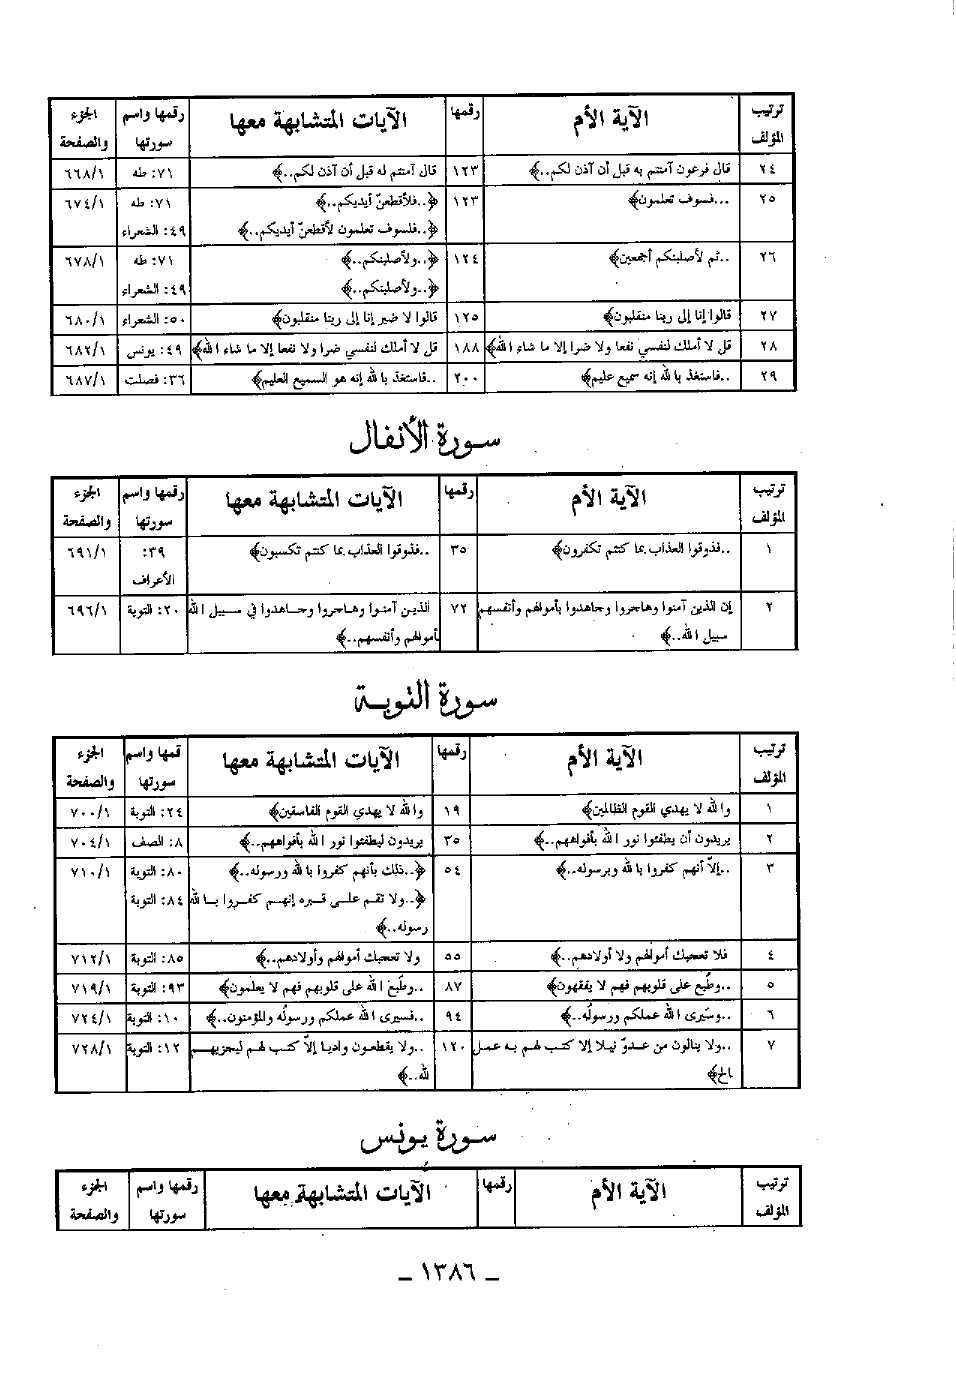 ترتيب المؤلف | الآية الأم | رقمها | الآيات المتشابهة معها | رقمها واسم سورتها | الجزء والصفحة
٢٤ | قال فرعون آمنتم به قبل أن آذن لكم..﴾ | ١٢٣ | قال آمنتم له قبل أن آذن لكم..﴾ | ٧١: طه | ٦٦٨/١
٢٥ | ...فسوف تعلمون﴾ | ١٢٣ | ﴿..فلأقطعنّ أيديكم..﴾ | ٧١: طه | ٦٧٤/١
﴿..فلسوف تعلمون لأقطعنّ أيديكم..﴾ | ٤٩: الشعراء
٢٦ | ..ثم لأصلبنكم أجمعين﴾ | ١٢٤ | ﴿..ولأصلبنكم..﴾ | ٧١: طه | ٦٧٨/١
﴿..ولأصلبنكم..﴾ | ٤٩: الشعراء
٢٧ | قالوا إنا إلى ربنا منقلبون﴾ | ١٢٥ | قالوا لا ضير إنا إلى ربنا منقلبون﴾ | ٥٠: الشعراء | ٦٨٠/١
٢٨ | قل لا أملك لنفسي نفعا ولا ضرا إلا ما شاء الله﴾ | ١٨٨ | قل لا أملك لنفسي ضرا ولا نفعا إلا ما شاء الله﴾ | ٤٩: يونس | ٦٨٢/١
٢٩ | ..فاستعذ بالله إنه سميع عليم﴾ | ٢٠٠ | ..فاستعذ بالله إنه هو السميع العليم﴾ | ٣٦: فصلت | ٦٨٧/١
سورة الأنفال
ترتيب المؤلف | الآية الأم | رقمها | الآيات المتشابهة معها | رقمها واسم سورتها | الجزء والصفحة
١ | ..فذوقوا العذاب بما كنتم تكفرون﴾ | ٣٥ | ..فذوقوا العذاب بما كنتم تكسبون﴾ | ٣٩: | ٦٩١/١
الأعراف
٢ | إن الذين آمنوا وهاجروا وجاهدوا بأموالهم وأنفسهم | ٧٢ | الذين آمنوا وهاجروا وجاهدوا في سبيل الله | ٢٠: التوبة | ٦٩٦/١
سبيل الله..﴾ | بأموالهم وأنفسهم..﴾
سورة التوبة
ترتيب المؤلف | الآية الأم | رقمها | الآيات المتشابهة معها | قمها واسم سورتها | الجزء والصفحة
١ | والله لا يهدي القوم الظالمين﴾ | ١٩ | والله لا يهدي القوم الفاسقين﴾ | ٢٤: التوبة | ٧٠٠/١
٢ | يريدون أن يطفئوا نور الله بأفواههم..﴾ | ٣٥ | يريدون ليطفئوا نور الله بأفواههم..﴾ | ٨: الصف | ٧٠٤/١
٣ | ..إلاّ أنهم كفروا بالله وبرسوله..﴾ | ٥٤ | ﴿..ذلك بأنهم كفروا بالله ورسوله..﴾ | ٨٠: التوبة | ٧١٠/١
﴿..ولا تقم على قبره إنهم كفروا بالله | ٨٤: التوبة
رسوله..﴾
٤ | فلا تعجبك أموالهم ولا أولادهم..﴾ | ٥٥ | ولا تعجبك أموالهم وأولادهم..﴾ | ٨٥: التوبة | ٧١٢/١
٥ | ..وطُبع على قلوبهم فهم لا يفقهون﴾ | ٨٧ | ..وطَبع الله على قلوبهم فهم لا يعلمون﴾ | ٩٣: التوبة | ٧١٩/١
٦ | ..وسَيرى الله عملكم ورسولُه..﴾ | ٩٤ | ..فسيرى الله عملكم ورسولُه والمؤمنون..﴾ | ١٠: التوبة | ٧٢٤/١
٧ | ..ولا ينالون من عدوّ نيلا إلا كتب لهم به عمل | ١٢٠ | ..ولا يقطعون واديا إلاّ كتب لهم ليجزيهم | ١٢: التوبة | ٧٢٨/١
الح﴾ | لله..﴾
سورة يونس
ترتيب المؤلف | الآية الأم | رقمها | الآيات المتشابهة معها | رقمها واسم سورتها | الجزء والصفحة
– ١٣٨٦ –